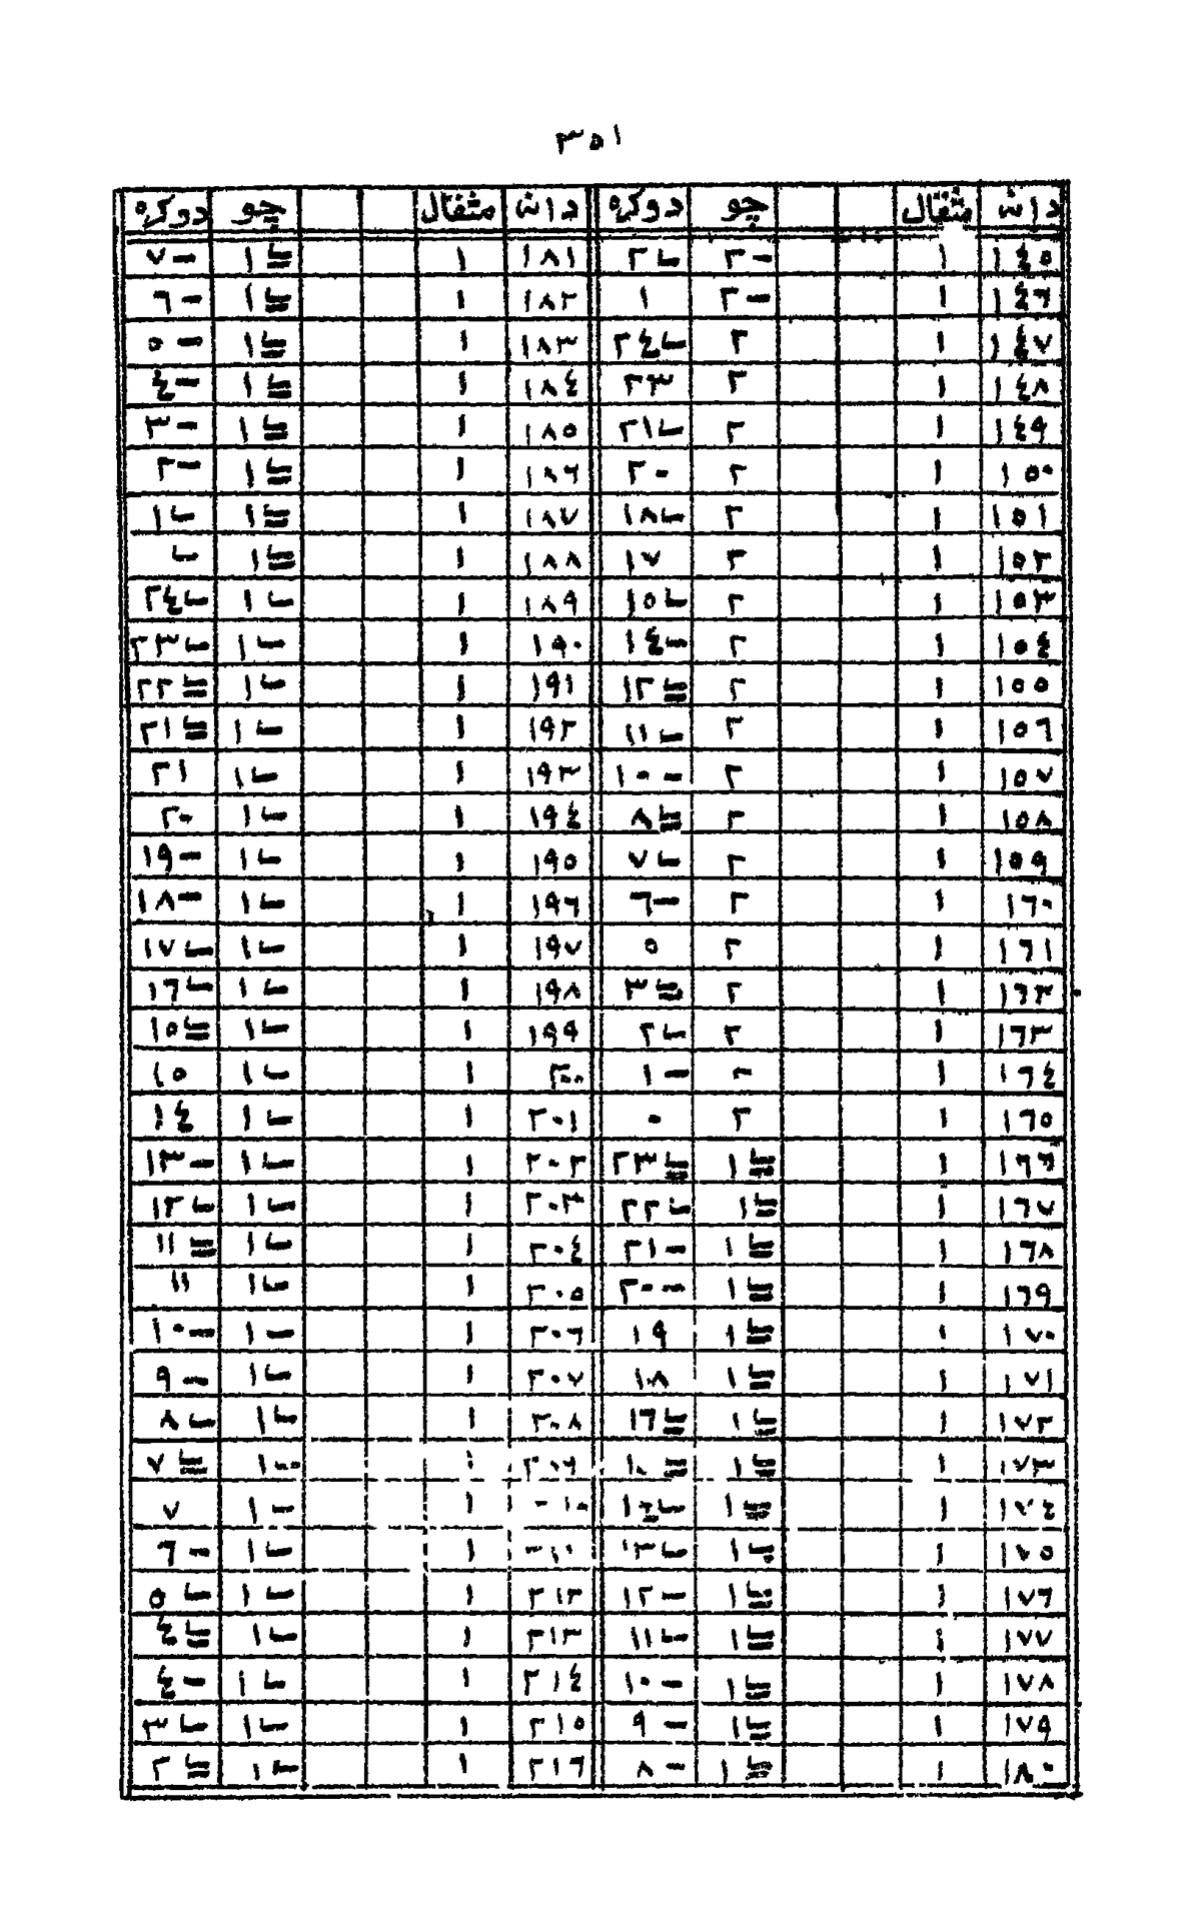 ٣٥١
دانه مثقال چو دوكره دانه مثقال چو دوكره
١٤٥ ١ ٢- ٢ ١٨١ ١ ١ ٧-
١٤٦ ١ ٢- ١ ١٨٢ ١ ١ ٦-
١٤٧ ١ ٢ ٢٤ ١٨٣ ١ ١ ٥-
١٤٨ ١ ٢ ٢٣ ١٨٤ ١ ١ ٤-
١٤٩ ١ ٢ ٢١ ١٨٥ ١ ١ ٣-
١٥٠ ١ ٢ ٢٠ ١٨٦ ١ ١ ٢-
١٥١ ١ ٢ ١٨ ١٨٧ ١ ١ ١
١٥٢ ١ ٢ ١٧ ١٨٨ ١ ١
١٥٣ ١ ٢ ١٥ ١٨٩ ١ ١ ٢٤
١٥٤ ١ ٢ ١٤ ١٩٠ ١ ١ ٢٣
١٥٥ ١ ٢ ١٢ ١٩١ ١ ١ ٢٢
١٥٦ ١ ٢ ١١ ١٩٢ ١ ١ ٢١
١٥٧ ١ ٢ ١٠- ١٩٣ ١ ١ ٢١
١٥٨ ١ ٢ ٨ ١٩٤ ١ ١ ٢٠
١٥٩ ١ ٢ ٧ ١٩٥ ١ ١ ١٩-
١٦٠ ١ ٢ ٦- ١٩٦ ١ ١ ١٨-
١٦١ ١ ٢ ٥ ١٩٧ ١ ١ ١٧
١٦٢ ١ ٢ ٣ ١٩٨ ١ ١ ١٦
١٦٣ ١ ٢ ٢ ١٩٩ ١ ١ ١٥
١٦٤ ١ ٢ ١- ٢٠٠ ١ ١ ١٥
١٦٥ ١ ٢ ٠ ٢٠١ ١ ١ ١٤
١٦٦ ١ ١ ٢٣ ٢٠٢ ١ ١ ١٣-
١٦٧ ١ ١ ٢٢ ٢٠٣ ١ ١ ١٢
١٦٨ ١ ١ ٢١- ٢٠٤ ١ ١ ١١
١٦٩ ١ ١ ٢٠- ٢٠٥ ١ ١ ١١
١٧٠ ١ ١ ١٩ ٢٠٦ ١ ١ ١٠-
١٧١ ١ ١ ١٨ ٢٠٧ ١ ١ ٩-
١٧٢ ١ ١ ١٦ ٢٠٨ ١ ١ ٨
١٧٣ ١ ١ ٢٠٩ ١ ١ ٧
١٧٤ ١ ١ ١٤ ١ ١ ٧
١٧٥ ١ ١ ١٣ ١ ١ ٦-
١٧٦ ١ ١ ١٢- ٢١٢ ١ ١ ٥
١٧٧ ١ ١ ١١ ٢١٣ ١ ١ ٤
١٧٨ ١ ١ ١٠- ٢١٤ ١ ١ ٤-
١٧٩ ١ ١ ٩- ٢١٥ ١ ١ ٣
١٨٠ ١ ١ ٨- ٢١٦ ١ ١ ٢